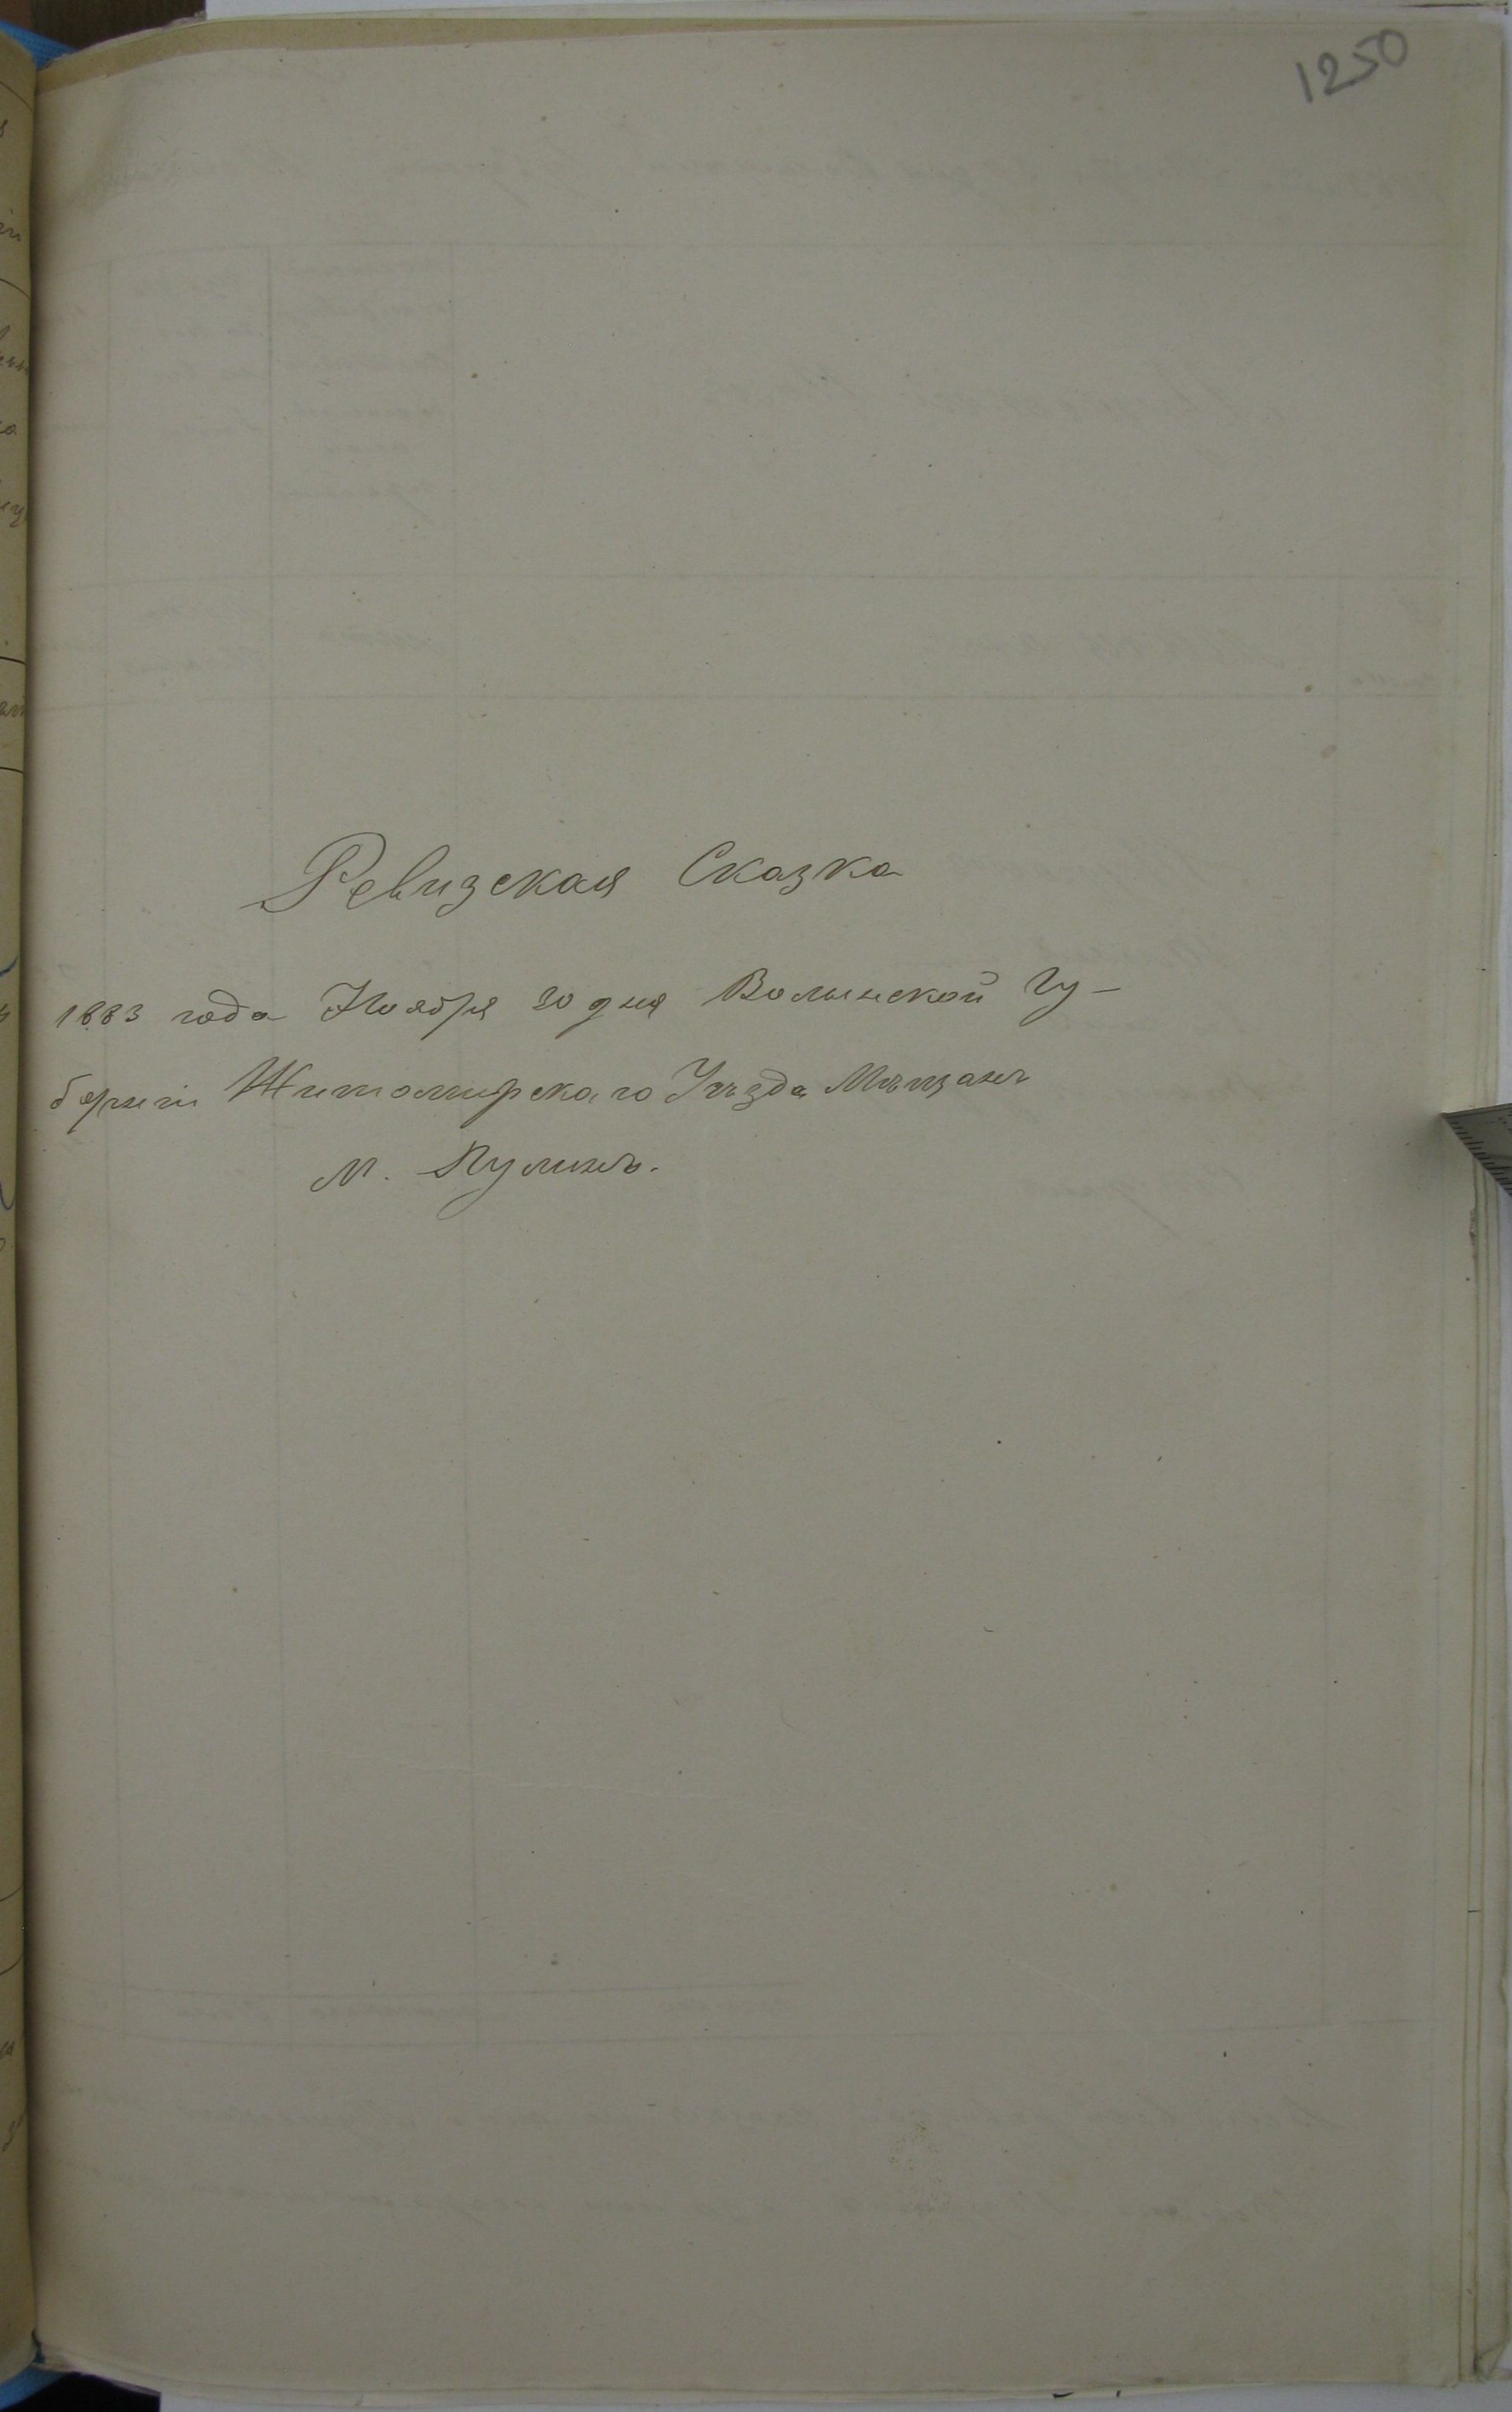 1250
Ревизская Сказка
1883 года Ноября 30 дня Волынской Гу-
берніи Житомирскаго Уѣзда Мѣщанъ
м. Пулинъ.